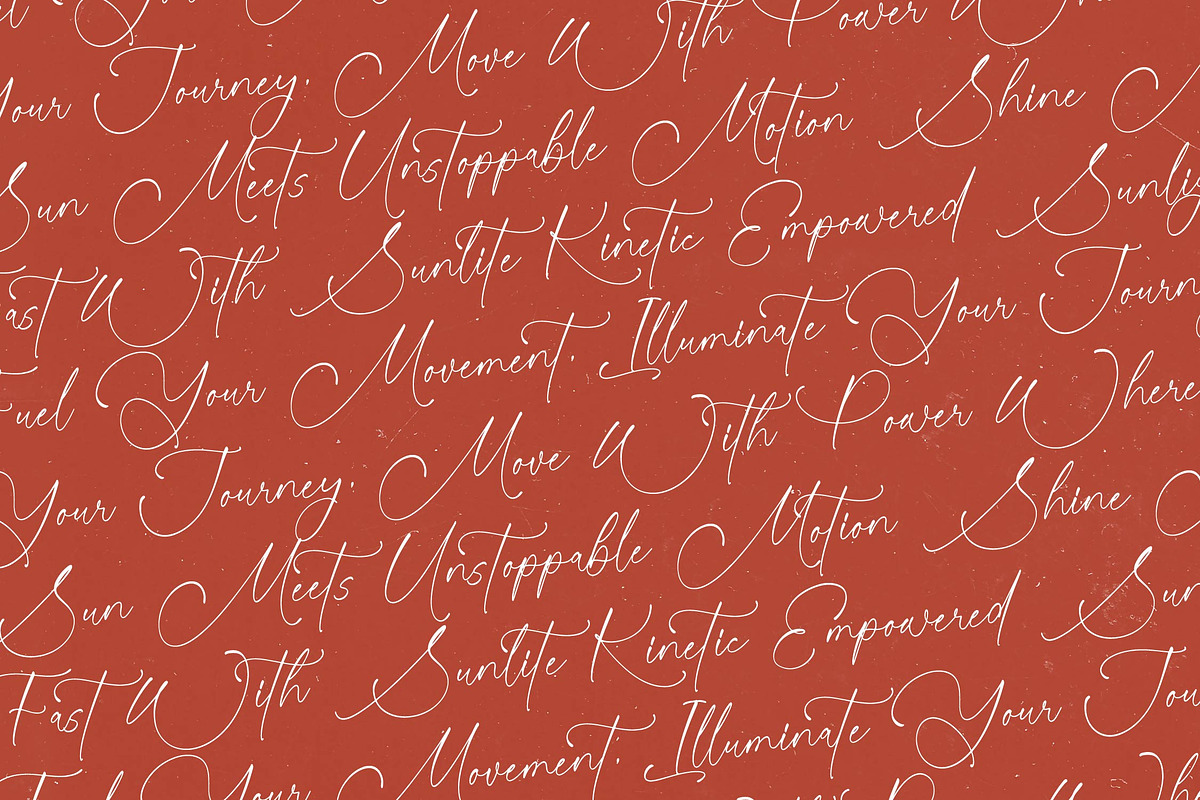 Your Journey. Move With Power
Sun Meets Unstoppable Motion Shine
Fast With Sunlite Kinetic Empowered Sunlig
Fuel Your Movement. Illuminate Your Journ
Your Journey. Move With Power Where
Sun Meets Unstoppable Motion Shine
Fast With Sunlite Kinetic Empowered Sun
Your Movement. Illuminate Your Jou